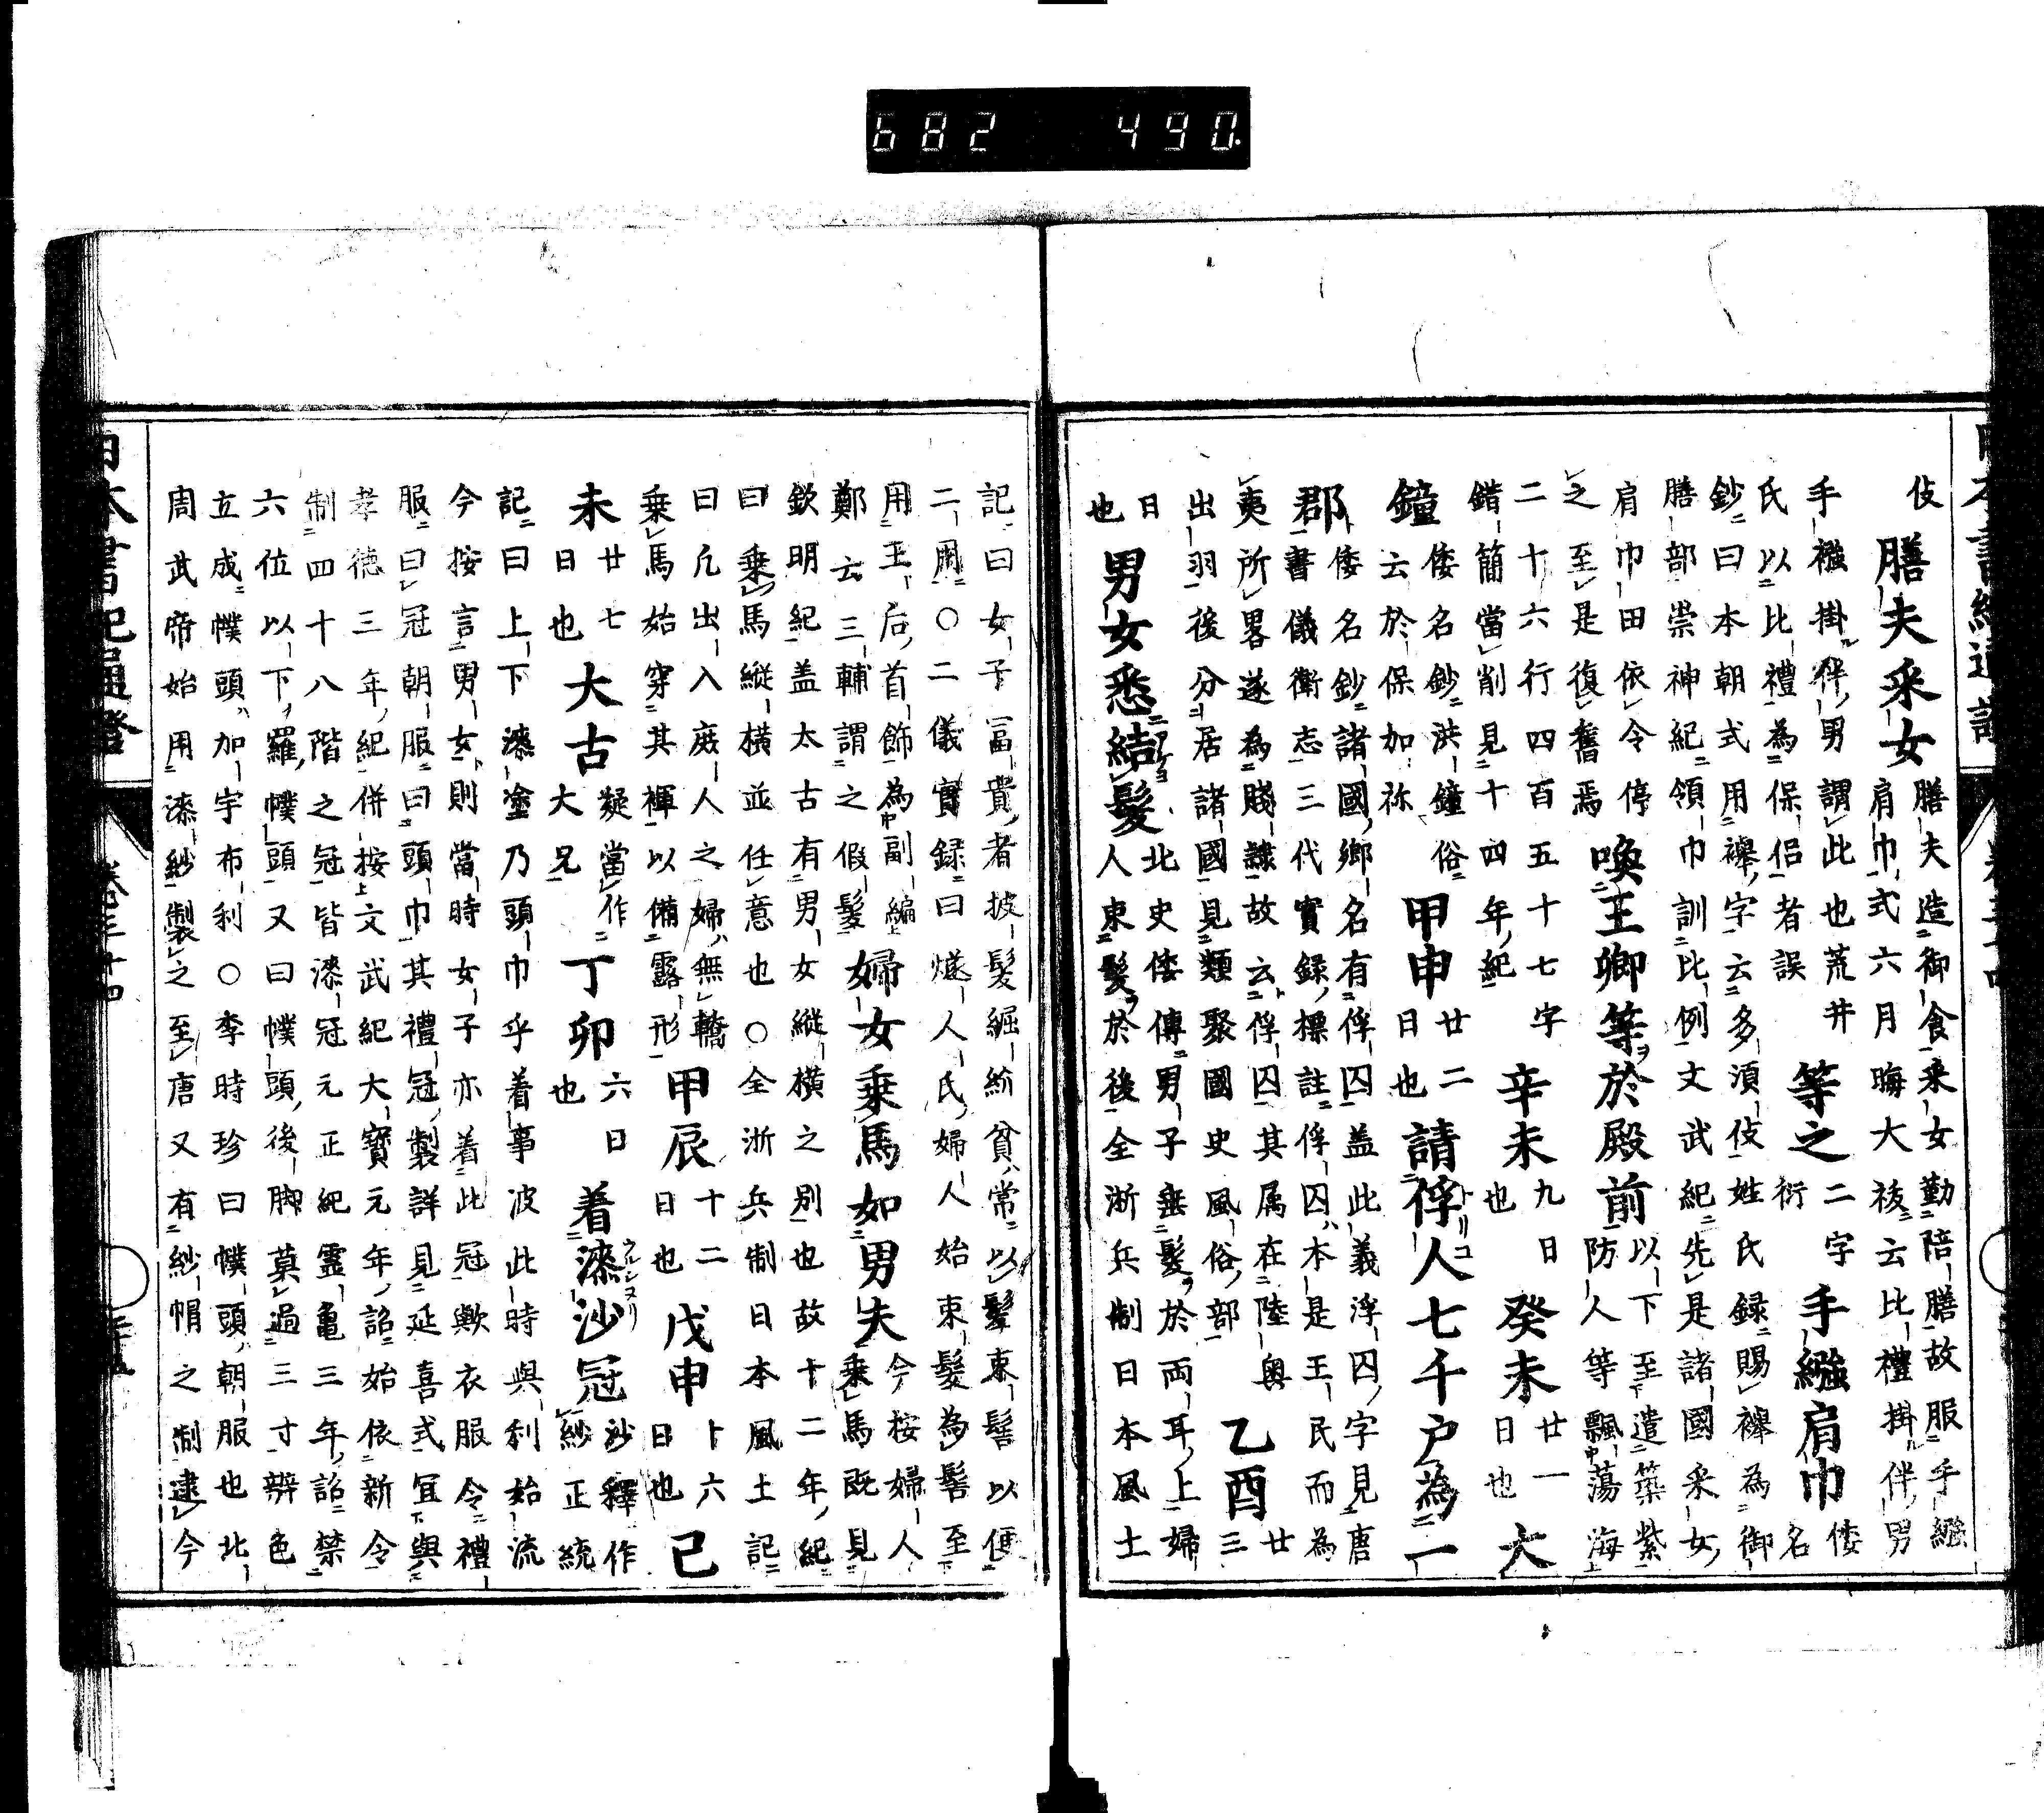 682 490
伎膳夫采女
膳夫造御食采女勤陪膳故服手繦
肩巾式六月晦大祓云比禮掛伴男
手襁掛伴男謂此也荒井
氏以比禮為保侶者誤
等之
二字
衍
手繦肩巾
倭
名
鈔曰本朝式用襷字云多須伎姓氏録賜襷為御
膳部崇神紀領巾訓比例文武紀先是諸國采女
肩巾田依令停
之至是復舊焉
喚王卿等ヲ於殿前
以下至遣築紫
防人等飄蕩海
二十六行四百五十七字
錯簡當削見十四年紀
辛未
九日
也
癸未
廿一
日也
大
鐘
倭名鈔洪鐘俗
云於保加祢
甲申
廿二
日也
請俘人七千戸為一
トリコ
郡
倭名鈔諸國郷名有俘囚盖此義浮囚字見唐
書儀衛志三代實録標註俘囚本是王民而為
夷所畧遂為賤隷故云俘囚其属在陸奥
出羽後分居諸國見類聚國史風俗部
乙酉
廿三
日也
男女悉結髪
北史倭傳男子垂髪於兩耳上婦
人束髪於後全浙兵制日本風土
記曰女子冨貴者披髪綰紒貧常以髪束髻以便
二用○二儀實録曰燧人氏婦人始束髪為髻至
用王后首飾為副編
鄭云三輔謂之假髪
婦女乗馬如男夫
今按婦人
乗馬既見
欽明紀盖太古有男女縦横之別也故十二年紀
曰乗馬縦横並任意也○全浙兵制日本風土記
曰凡出入庶人之婦無轎
乗馬始穿其褌以備露形
甲辰
十二
日也
戊申
十六
日也
己
未
廿七
日也
大古
疑當作
大兄
丁卯
六日
也
着漆沙冠
ウルシヌリ
沙釋作
紗正続
記曰上下漆塗乃頭巾乎着事波此時與利始流
今按言男女則當時女子亦着此冠歟衣服令禮
服曰冠朝服曰頭巾其禮冠製詳見延喜式冝與
孝徳三年紀併按文武紀大寶元年詔始依新令
制四十八階之冠皆漆冠元正紀霊亀三年詔禁
六位以下羅幞頭又曰幞頭後脚莫過三寸辨色
立成幞頭加宇布利○李時珍曰幞頭朝服也北
周武帝始用漆紗製之至唐又有紗帽之制逮今
日本書紀通證